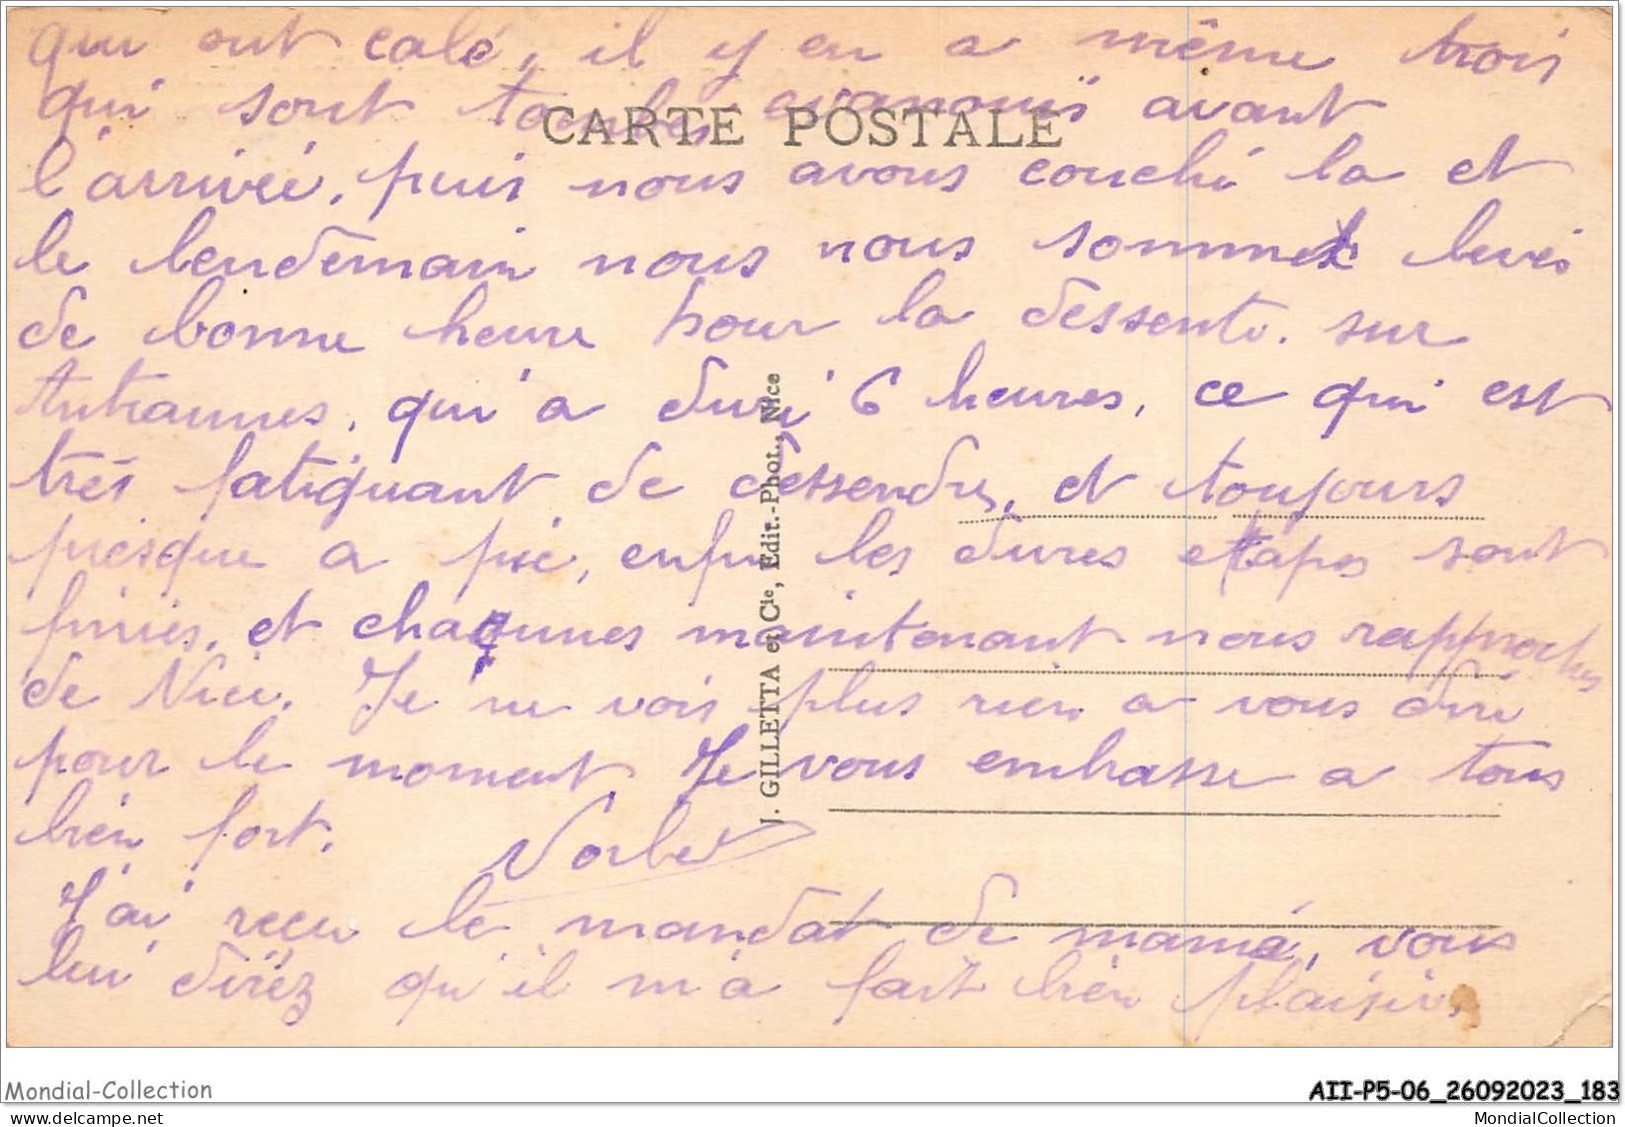 qui ont calé, il y en a même trois
qui sont tombés evanouïs avant
CARTE POSTALE
l'arrivée, puis nous avons couché la et
le lendemain nous nous sommes levés
de bonne heure pour la dessente. sur
qui a duré 6 heures, ce qui est
très fatiguant de dessendre, et toujours
presque a pic, enfin les dures etapes sont
finies, et chaqunes maintenant nous rapproches
de Nice. Je ne vois plus rien a vous dire
pour le moment. Je vous embrasse a tous
bien fort.
J'ai reçu le mandat de mama, vous
lui direz qu'il m'a fait bien plaisir.
J. GILLETTA et Cie, Edit.-Phot., Nice
Mondial-Collection
AII-P5-06_26092023_183
MondialCollection